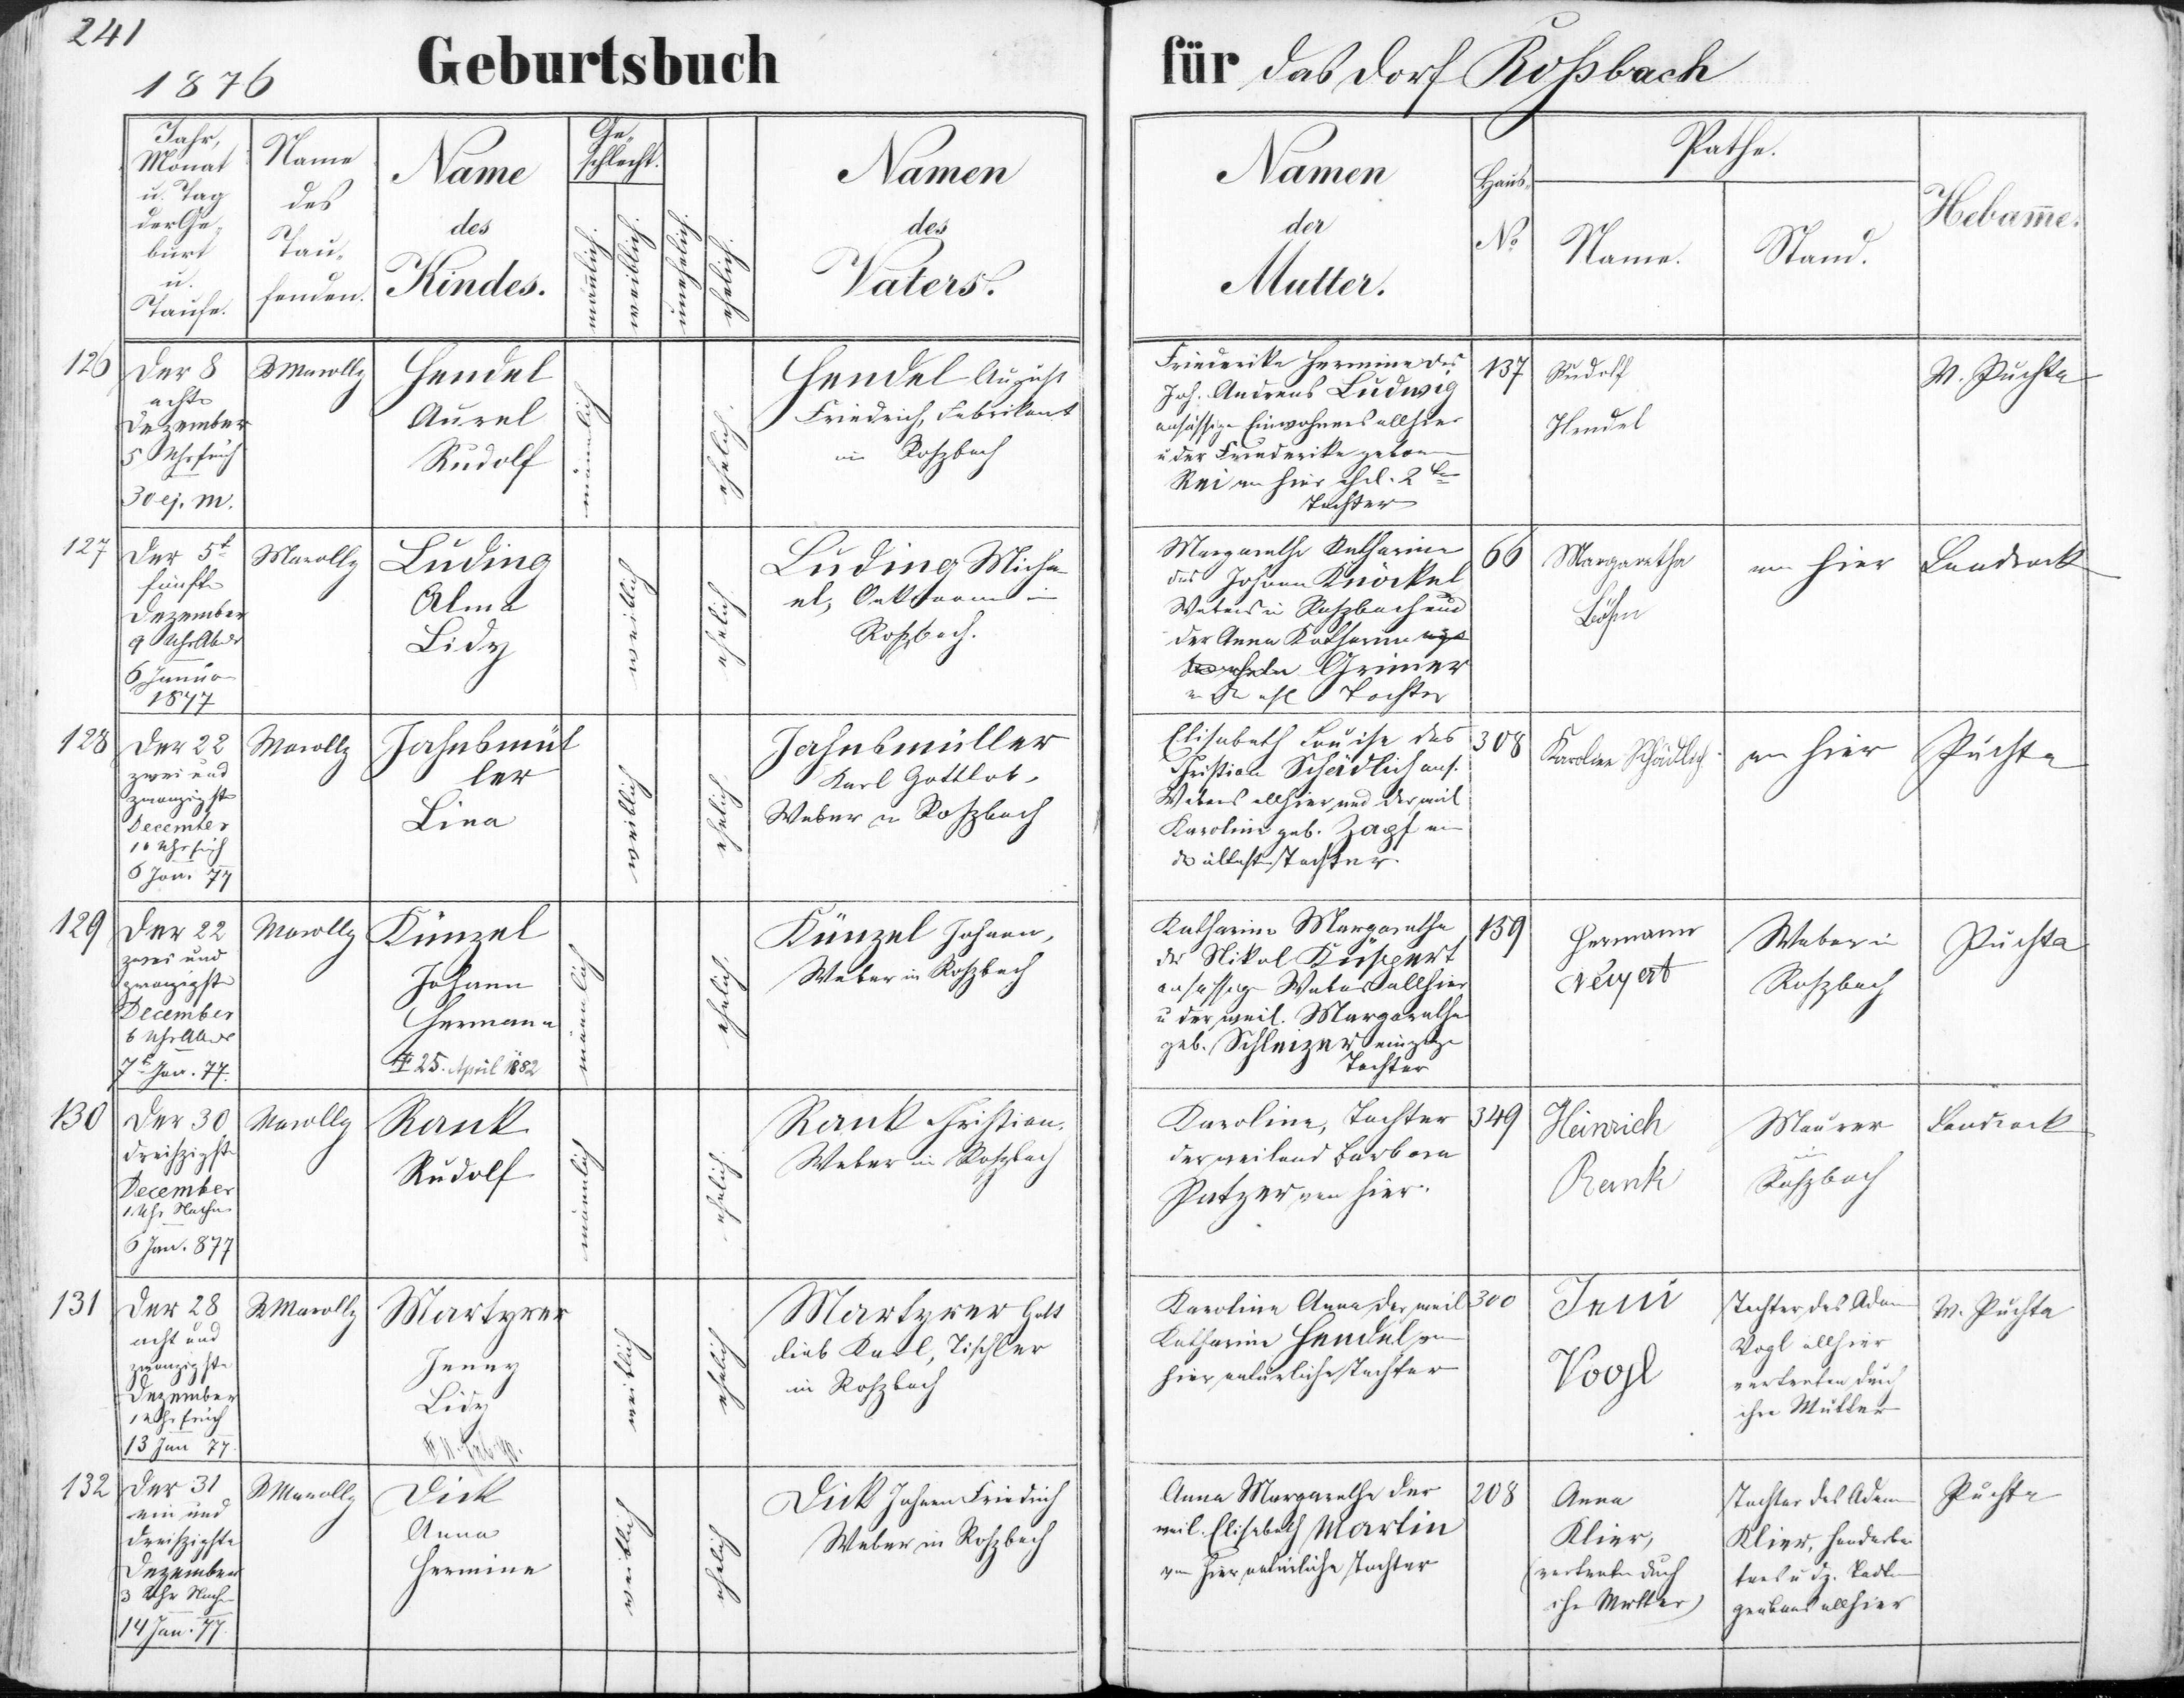 241
1876
Geburtsbuch
für das Dorf Roßbach
Jahr,
Monat
u. Tag
der Ge-
burt
u.
Taufe.
Name
des
Tau-
fenden.
Name
des
Kindes.
Ge-
schlecht.
männlich.
weiblich.
unehelich.
ehelich.
Namen
des
Vaters.
Namen
der
Mutter.
Haus-
No
Pathe.
Name.
Stand.
Hebame.
126
Der 8
achte
Dezember
5 Uhr früh
30 ej. m.
Marolly
Hendel
Aurel
Rudolf
männlich
ehelich.
Hendel August
Friedrich, Fabrikant
in Roßbach
Friederike Hermine des
Joh. Andreas Ludwig
ansässigen Einwohners allhier
u der Friederike geborne
hier ehel. 2te
Tochter
137
Rudolf
Hendel
W. Puchta
127
Der 5t
fünfte
Dezember
9 Uhr Abds
6 Januar
1877
Marolly
Luding
Alma
Lidy
weiblich
ehelich
Luding Micha-
el, Oekonom in
Roßbach.
Margarethe Katharine
des Johann Knöckel
Webers in Roßbach und
der Anna Katharina
Grimer
ehl Tochter
66
Margaretha
Böhm
von hier
Landrock
128
Der 22
zwei und
zwanzigste
December
10 Uhr früh
6 Jan. 77
Marolly
Jahnsmül
ler
Lina
weiblich
ehelich
Jahnsmüller
Karl Gottlob,
Weber in Roßbach
Elisabeth Louise des
Christian Schädlich ans.
Webers allhier und der weil
Karoline geb. Zapf
älteste Tochter.
308
Karoline Schädlich
von hier
Puchta
129
Der 22
zwei und
zwanzigste
December
6 Uhr Abds
7t Jan. 77.
Marolly
Künzel
Johann
Hermann
25. April 1882
männlich
ehelich.
Künzel Johann,
Weber in Roßbach
Katharine Margarethe
des Nikol Küspert
ansässigen Webers allhier
u der weil. Margarethe
geb. Schleizer einzige
Tochter
159
Hermann
Weber in
Roßbach
Puchta
130
Der 30
dreißigste
December
1 Uhr Nachm
6 Jan. 877
Marolly
Rank
Rudolf
männlich
ehelich.
Rank Christian,
Weber in Roßbach
Karoline, Tochter
der weiland Barbara
Patzer von hier.
349
Heinrich
Rank
Maurer
in
Roßbach
Landrock
131
Der 28
acht und
zwanzigste
Dezember
1 Uhr früh
13 Jan 77.
Marolly
Martyrer
Jenny
Lidy
weiblich
ehelich
Martyrer Gott
lieb Karl, Tischler
in Roßbach
Karoline Anna der weil
Katharine Hendel von
hier natürliche Tochter
300
Jeni
Vogl
Tochter des Adam
Vogl allhier
vertreten durch
ihre Mutter
W. Puchta
132
Der 31
ein und
dreißigste
Dezember
3 Uhr Nachm
14 Jan. 77.
Marolly
Dick
Anna
Hermine
weiblich
ehelich
Dick Johann Friedrich
Weber in Roßbach
Anna Margarethe der
weil. Elisabeth Martin
von hier natürliche Tochter
208
Anna
Klier,
(vertreten durch
ihre Mutter)
Tochter des Adam
Klier, Handarbei
ters u
allhier
Puchta